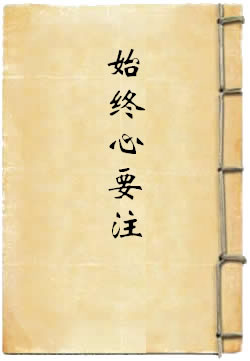 始终心要注